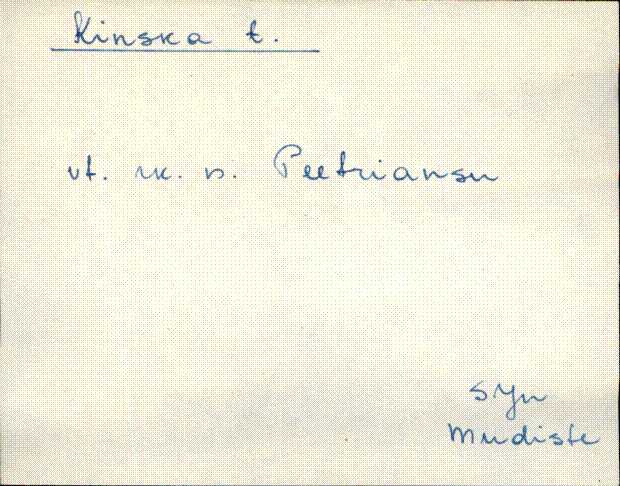 Kinska t.
vt. rk. n. Peetriansu
Syn
Mudiste